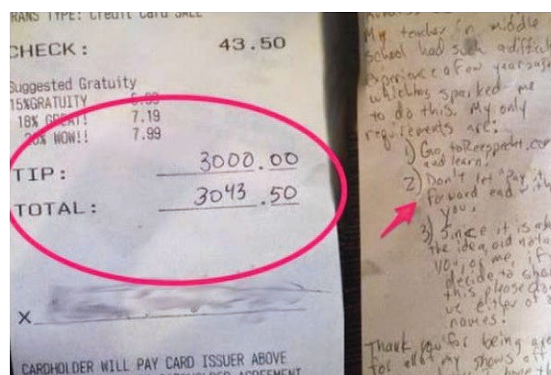 TRANS TYPE: Credit Card SALE
CHECK: 43.50
Suggested Gratuity
15%GRATUITY
18% GREAT! 7.19
20% WOW!! 7.99
TIP: 3000.00
TOTAL: 3043.50
X
CARDHOLDER WILL PAY CARD ISSUER ABOVE
CARDHOLDER AGREEMENT
My teacher in middle
school had such a difficult
experience a few years ago
which sparked me
to do this. My only
requirements are:
1) Go to Reespecht.com
and learn!
2) Don't let "Pay it
forward" end with
you.
3) Since it is about
the idea, and not
you, or me, if
decide to
this please
use either of
names!
Thank you for being
for all of my shows